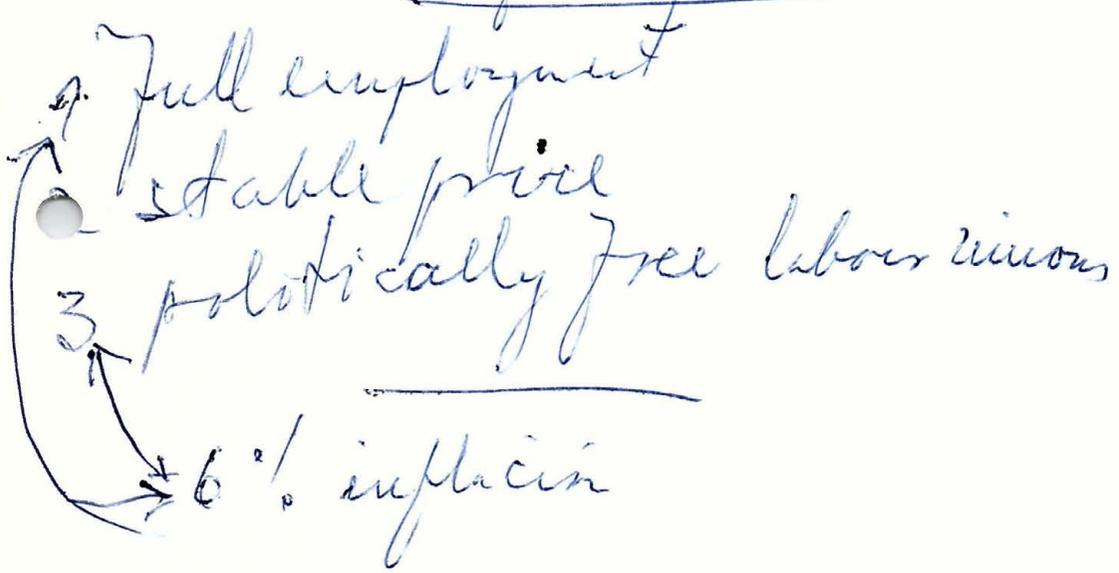 1. Full employment
stable price
3 politically free labour unions
6% inflación